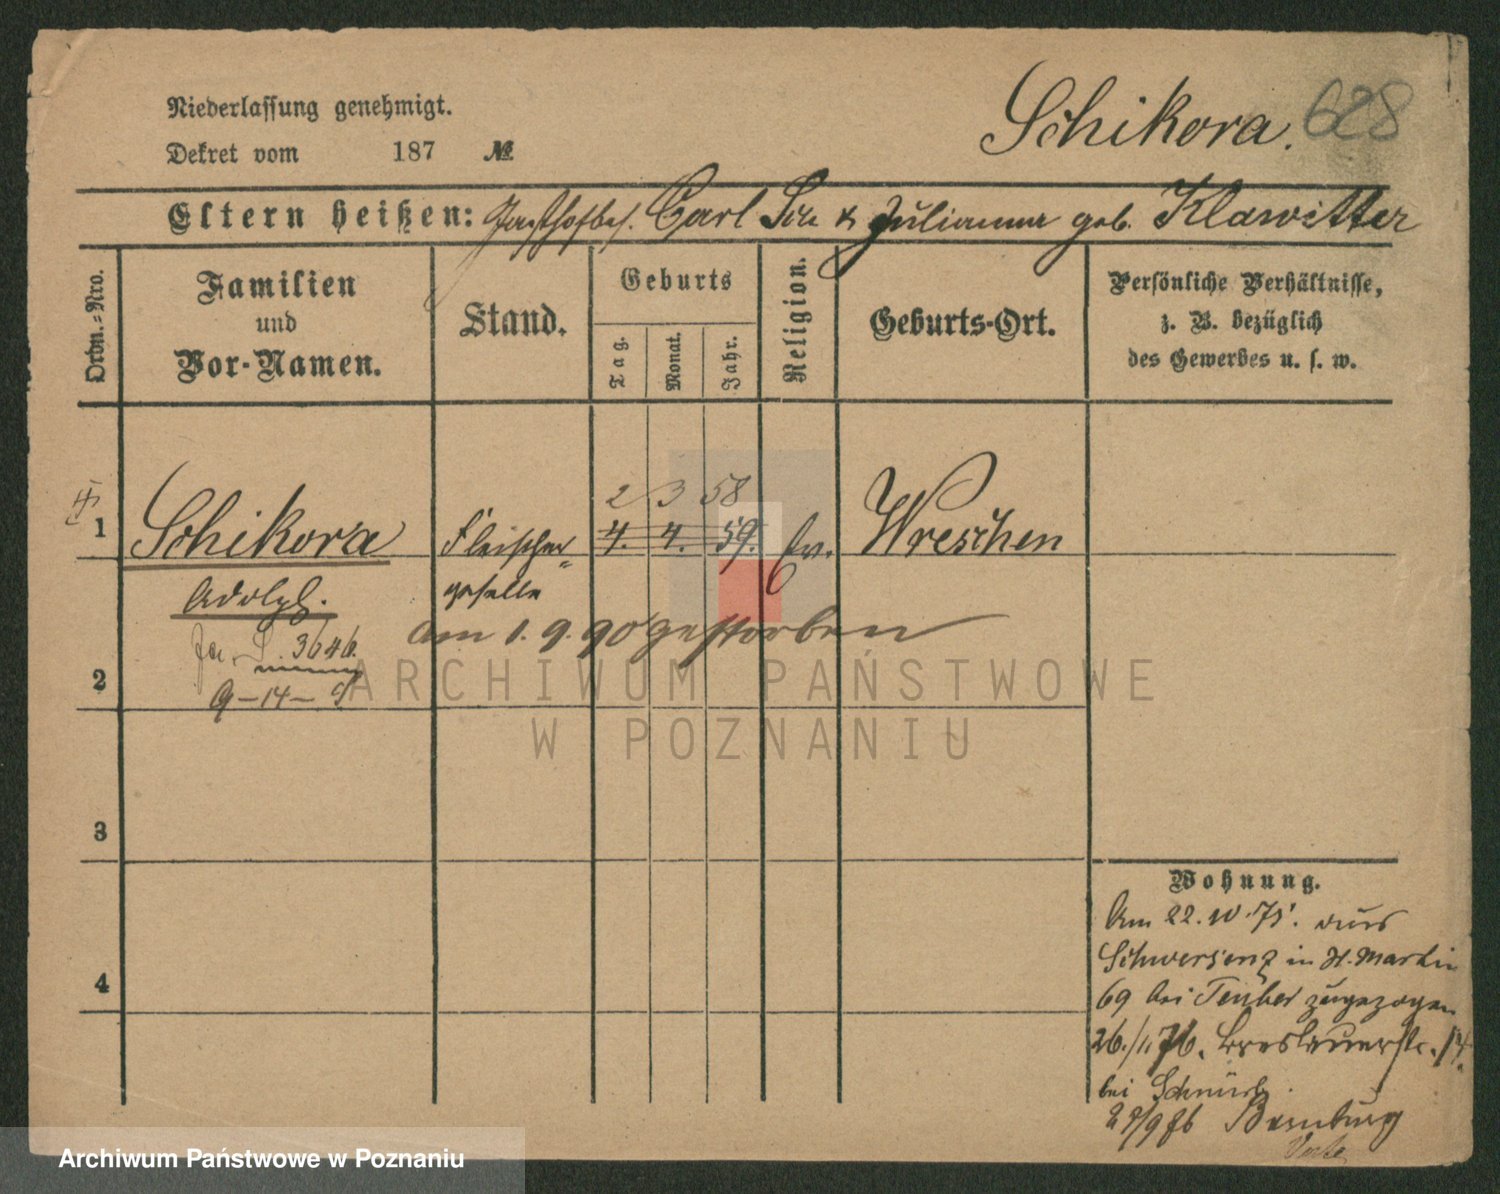 Niederlassung genehmigt.
Dekret vom 187 №
Schikora. 628
Eltern heißen: Gasthofbes. Carl Sch & Julianna geb. Klawitter
Ordn.-Nro.
Familien
und
Vor-Namen.
Stand.
Geburts
Tag.
Monat.
Jahr.
Religion.
Geburts-Ort.
Persönliche Verhältnisse,
z. B. bezüglich
des Gewerbes u. s. w.
2 3 58
1 Schikora Fleischer= 4. 4. 59. Ev. Wreschen
Adolph. geselle
am 1.9.90 gestorben
3646.
2 9-14-
3
4
Wohnung.
Am 22.10.75. aus
Schwersenz in St. Martin
69 bei Teuber zugezogen
26./11 76. Breslauerstr. 14.
bei
27/9 76 Bromburg
ARCHIWUM PAŃSTWOWE
W POZNANIU
Archiwum Państwowe w Poznaniu